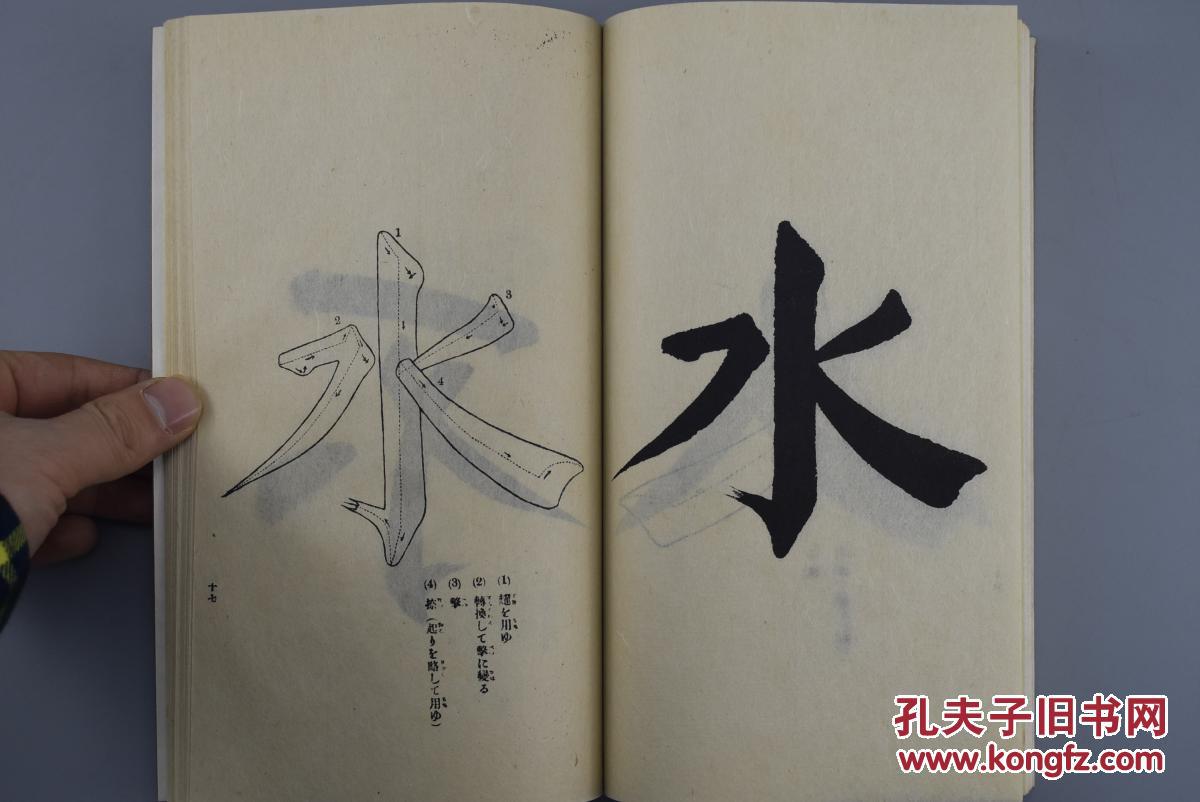 水
水
1
2
3
4
(1) 趯を用ゆ
(2) 轉換して撃に變る
(3) 撃
(4) 捺(起りを略して用ゆ)
十七
孔夫子旧书网
www.kongfz.com